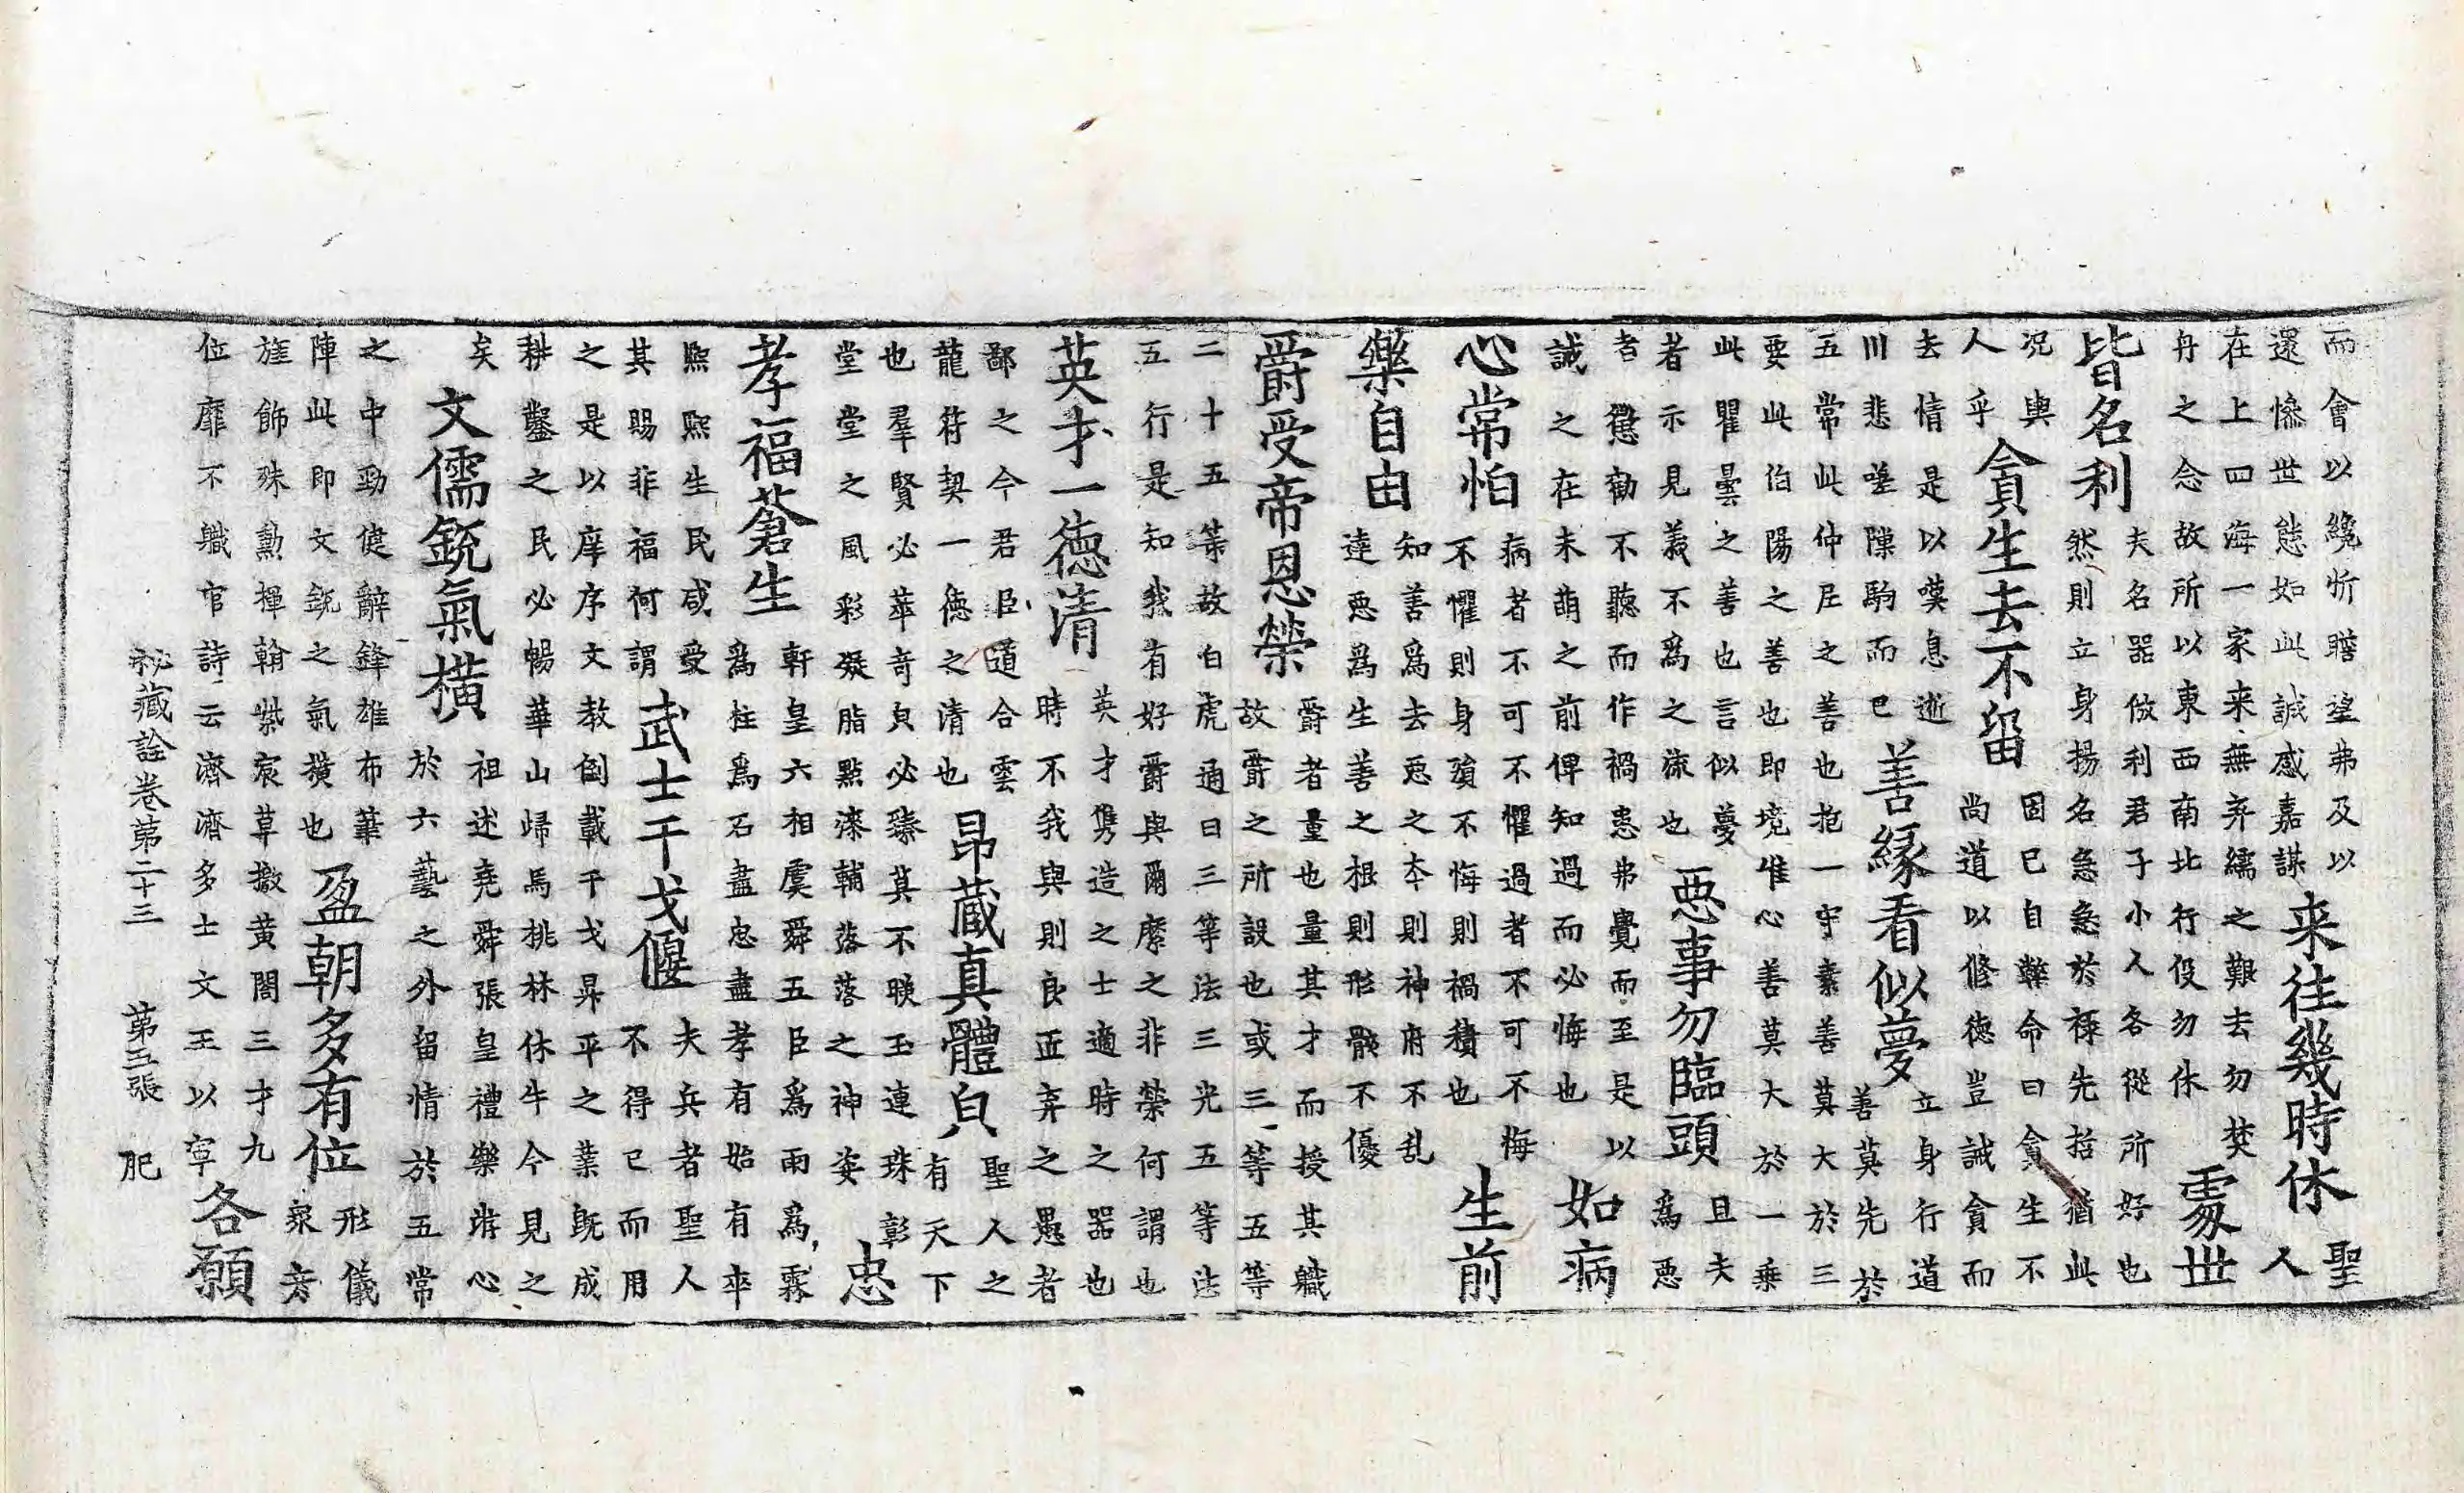 而會以纔忻瞻望弗及以
還慘世態如此誠感嘉謀
来往幾時休
聖
人
在上四海一家来無弃繻之艱去勿焚
舟之念故所以東西南北行役勿休
處世
皆名利
夫名器倣利君子小人各從所好也
然則立身揚名急急於祿先哲猶此
况輿
人乎
貪生去不留
固已自弊命曰貪生不
尚道以修德豈誡貪而
去情是以嘆息逝
川悲嗟隟駒而已
善緣看似夢
立身行道
善莫先於
五常此仲尼之善也抱一守素善莫大於三
要此伯陽之善也即境唯心善莫大於一乘
此瞿曇之善也言似夢
者示見義不爲之流也
惡事勿臨頭
且夫
爲惡
者懲勸不聽而作禍患弗覺而至是以
誡之在未萌之前俾知過而必悔也
如病
心常怕
病者不可不懼過者不可不悔
不懼則身殞不悔則禍積也
生前
樂自由
知善爲去惡之本則神府不乱
達惡爲生善之根則形骸不優
爵受帝恩榮
爵者量也量其才而授其職
故爵之所設也或三等五等
二十五等故白虎通曰三等法三光五等法
五行是知我有好爵與爾縻之非榮何謂也
英才一德清
英才雋造之士適時之器也
時不我與則良匠弃之愚者
鄙之今君臣道合雲
龍符契一德之清也
昂藏真體皃
聖人之
有天下
也羣賢必萃奇皃必臻莫不睒玉連珠彰
堂堂之風彩凝脂點漆輔落落之神姿
忠
孝福蒼生
軒皇六相虞舜五臣爲雨爲霖
爲柱爲石盡忠盡孝有始有卒
熙熙生民咸受
其賜非福何謂
武士干戈偃
夫兵者聖人
不得已而用
之是以庠序文教倒載干戈昇平之業既成
耕鑿之民必暢華山歸馬桃林休牛今見之
矣
文儒銳氣橫
祖述堯舜張皇禮樂游心
於六藝之外留情於五常
之中勁健辭鋒雄布華
陣此即文銳之氣橫也
盈朝多有位
形儀
衆彥
旌飾殊勳揮翰紫宸草撒黃閤三才九
位靡不職官詩云濟濟多士文王以寧
各願
秘藏詮卷第二十三 第五張 肥